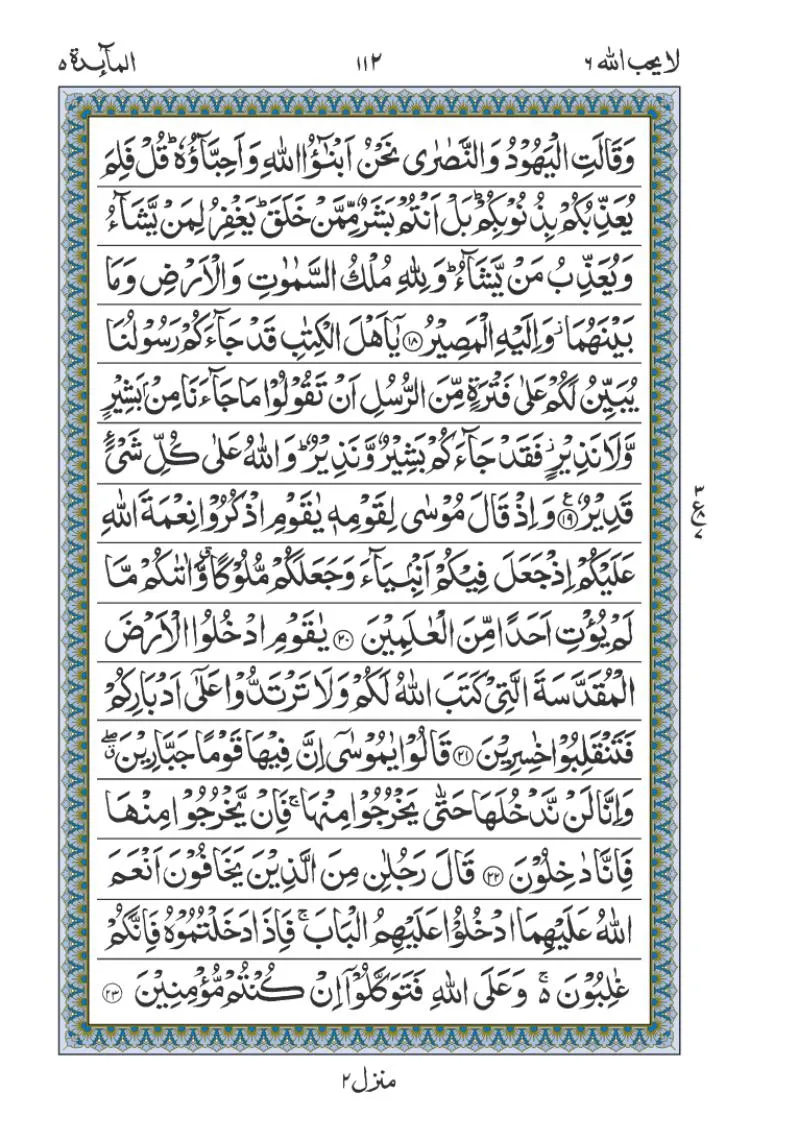 لا یحب اللہ ۶
۱۱۲
المآئدة ۵
وَقَالَتِ الْیَهُوْدُ وَالنَّصٰرٰی نَحْنُ اَبْنٰٓؤُا اللّٰهِ وَاَحِبَّآؤُهٗ ؕ قُلْ فَلِمَ
یُعَذِّبُكُمْ بِذُنُوْبِكُمْ ؕ بَلْ اَنْتُمْ بَشَرٌ مِّمَّنْ خَلَقَ ؕ یَغْفِرُ لِمَنْ یَّشَآءُ
وَیُعَذِّبُ مَنْ یَّشَآءُ ؕ وَلِلّٰهِ مُلْكُ السَّمٰوٰتِ وَالْاَرْضِ وَمَا
بَیْنَهُمَا ؗ وَاِلَیْهِ الْمَصِیْرُ ﴿۱۸﴾ یٰۤاَهْلَ الْكِتٰبِ قَدْ جَآءَكُمْ رَسُوْلُنَا
یُبَیِّنُ لَكُمْ عَلٰی فَتْرَةٍ مِّنَ الرُّسُلِ اَنْ تَقُوْلُوْا مَا جَآءَنَا مِنْۢ بَشِیْرٍ
وَّلَا نَذِیْرٍ ؗ فَقَدْ جَآءَكُمْ بَشِیْرٌ وَّنَذِیْرٌ ؕ وَاللّٰهُ عَلٰی كُلِّ شَیْءٍ
قَدِیْرٌ ﴿۱۹﴾ ع وَاِذْ قَالَ مُوْسٰی لِقَوْمِهٖ یٰقَوْمِ اذْكُرُوْا نِعْمَةَ اللّٰهِ
۳ ع ۸ ۷
عَلَیْكُمْ اِذْ جَعَلَ فِیْكُمْ اَنْۢبِیَآءَ وَجَعَلَكُمْ مُّلُوْكًا ۗۖ وَّاٰتٰىكُمْ مَّا
لَمْ یُؤْتِ اَحَدًا مِّنَ الْعٰلَمِیْنَ ﴿۲۰﴾ یٰقَوْمِ ادْخُلُوا الْاَرْضَ
الْمُقَدَّسَةَ الَّتِیْ كَتَبَ اللّٰهُ لَكُمْ وَلَا تَرْتَدُّوْا عَلٰۤی اَدْبَارِكُمْ
فَتَنْقَلِبُوْا خٰسِرِیْنَ ﴿۲۱﴾ قَالُوْا یٰمُوْسٰۤی اِنَّ فِیْهَا قَوْمًا جَبَّارِیْنَ ۖۗ
وَاِنَّا لَنْ نَّدْخُلَهَا حَتّٰی یَخْرُجُوْا مِنْهَا ۚ فَاِنْ یَّخْرُجُوْا مِنْهَا
فَاِنَّا دٰخِلُوْنَ ﴿۲۲﴾ قَالَ رَجُلٰنِ مِنَ الَّذِیْنَ یَخَافُوْنَ اَنْعَمَ
اللّٰهُ عَلَیْهِمَا ادْخُلُوْا عَلَیْهِمُ الْبَابَ ۚ فَاِذَا دَخَلْتُمُوْهُ فَاِنَّكُمْ
غٰلِبُوْنَ ۚ۬ وَعَلَی اللّٰهِ فَتَوَكَّلُوْۤا اِنْ كُنْتُمْ مُّؤْمِنِیْنَ ﴿۲۳﴾
منزل ۲